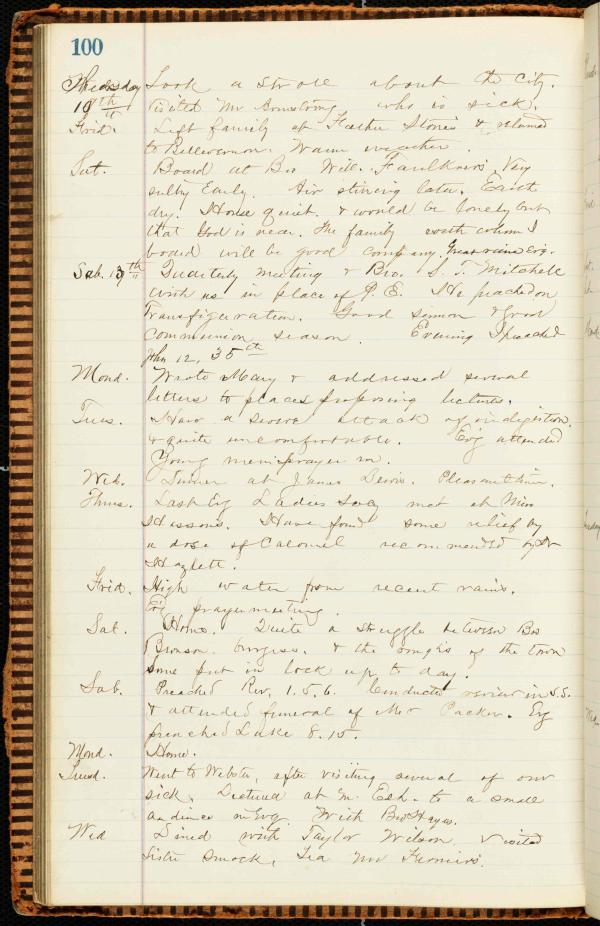 100
Thursday Took a stroll about the City.
10th visited Mr Armstrong who is sick.
Frid. Left family at Father Stones & returned
to Bellevernon. Warm weather.
Sat. Board at Bro Will. Faulkners Very
sultry Early. Air stirring later. Earth
dry. House quiet. & would be lonely but
that God is near. The family with whom I
board will be good company. Great rain Evg.
Sab. 13th Quarterly meeting & Bro. S. T. Mitchell
with us in place of P. E. He preached on
Transfiguration. Good sermon & good
communion season. Evening I preached
John 12, 35th
Mond. Wrote Mary & addressed several
letters to places proposing lectures.
Tues. Have a severe attack of indigestion.
& quite uncomfortable. Evg attended
Young mens prayer m.
Wed. Dinner at James Pleasant time.
Thurs. Last Evg Ladies Socy met at Miss
Hissons. Have found some relief by
a dose of Calomel recommended by Dr
Hazlett.
Frid. High water from recent rains.
Evg prayermeeting.
Sat. Home. Quite a struggle between Bro
Bronson burgess. & the roughs of the town
some put in lock up to day.
Sab. Preached Rev. 1. 5, 6. Conducted review in S.S.
& attended funeral of Mr Packer. Evg
preached Luke 8. 15.
Mond. Home.
Tuesd. Went to Webster, after visiting several of our
sick. Lectured at M. Esh. to a small
audience in Evg. With Bro Hayes.
Wed Dined with Taylor Wilson. Visited
Sister Smock, Tea